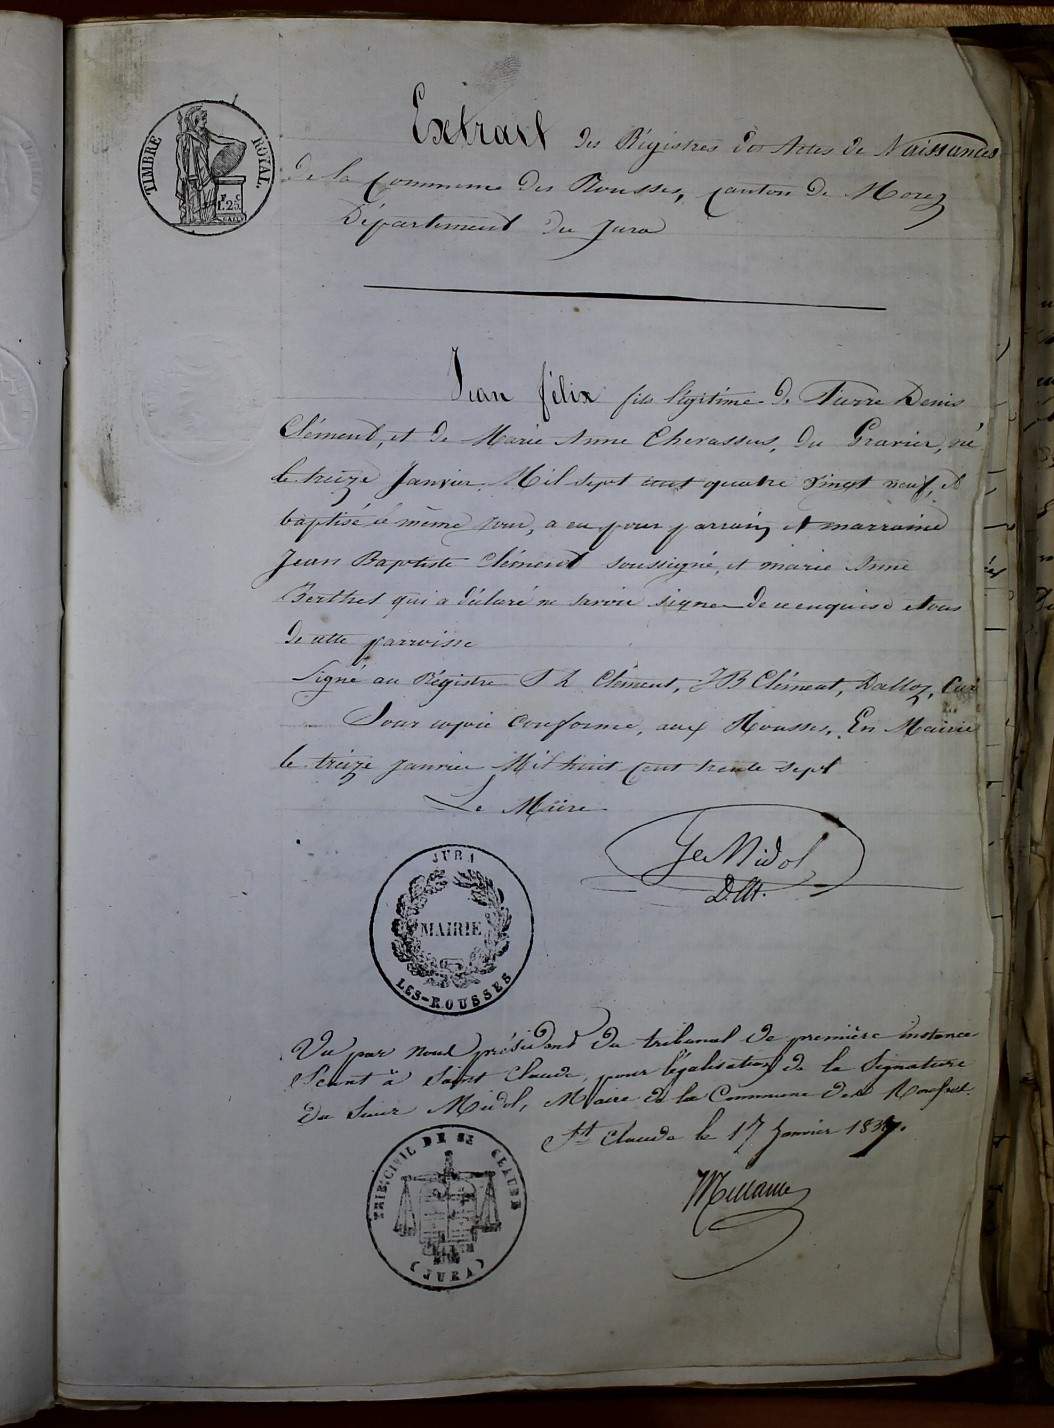 TIMBRE ROYAL.
1.25
Extrait des Régistres des Actes de Naissances
de la Commune des Rousses, Canton de Morez
Département du Jura
Jean félix fils légitime de Pierre Denis
Clément, et de Marie Anne Chevassus, du Gravier, né
le treize Janvier Mil sept cent quatre vingt neuf, et
baptisé le même jour, a eu pour parrain et marraine
Jean Baptiste Clément soussigné, et marie Anne
Berthet qui a déclaré ne savoir signer de ce enquise et tous
de cette parroisse
Signé au Régistre Clément, JB Clément, Dalloz, Curé
Pour copie conforme, aux Rousses, En Mairie
le treize Janvier Mil huit Cent trente sept
Le Maire
Midol
JURA
MAIRIE
LES-ROUSSES
Vu par nous président du tribunal de première instance
Séant à Saint Claude, pour légalisation de la Signature
du Sieur Midol, Maire de la Commune des Rousses.
St Claude le 17 Janvier 1837.
TRIB. CIVIL DE ST CLAUDE
(JURA)